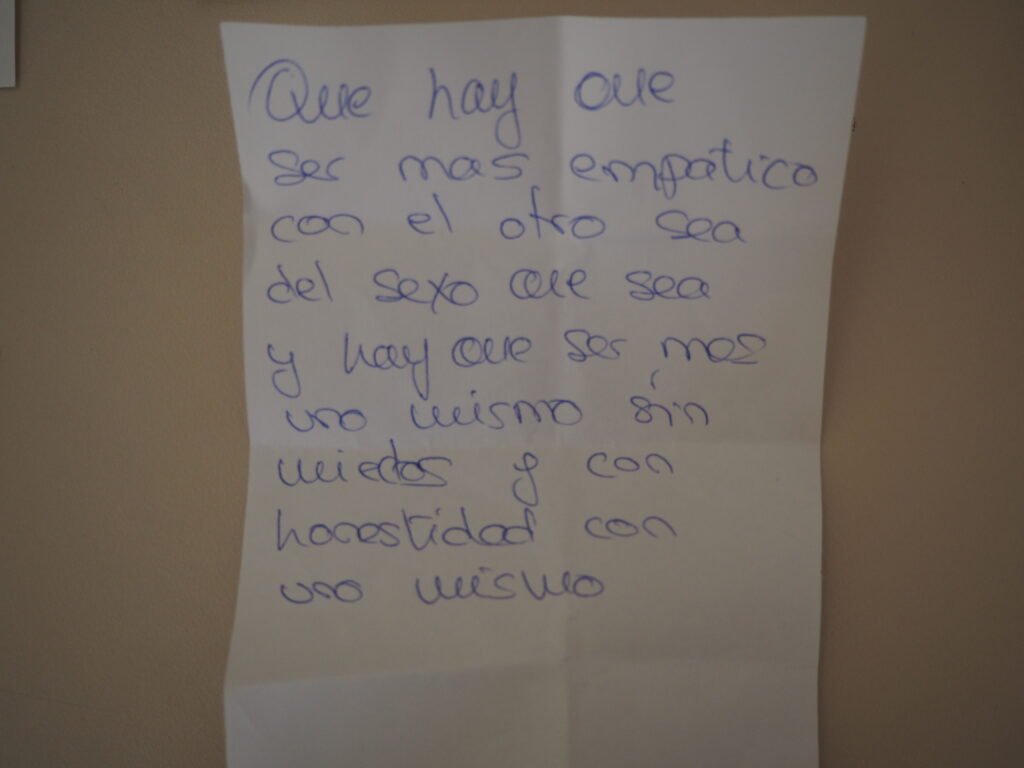 Que hay que
ser mas empático
con el otro sea
del sexo que sea
y hay que ser mas
uno mismo sin
miedos y con
honestidad con
uno mismo